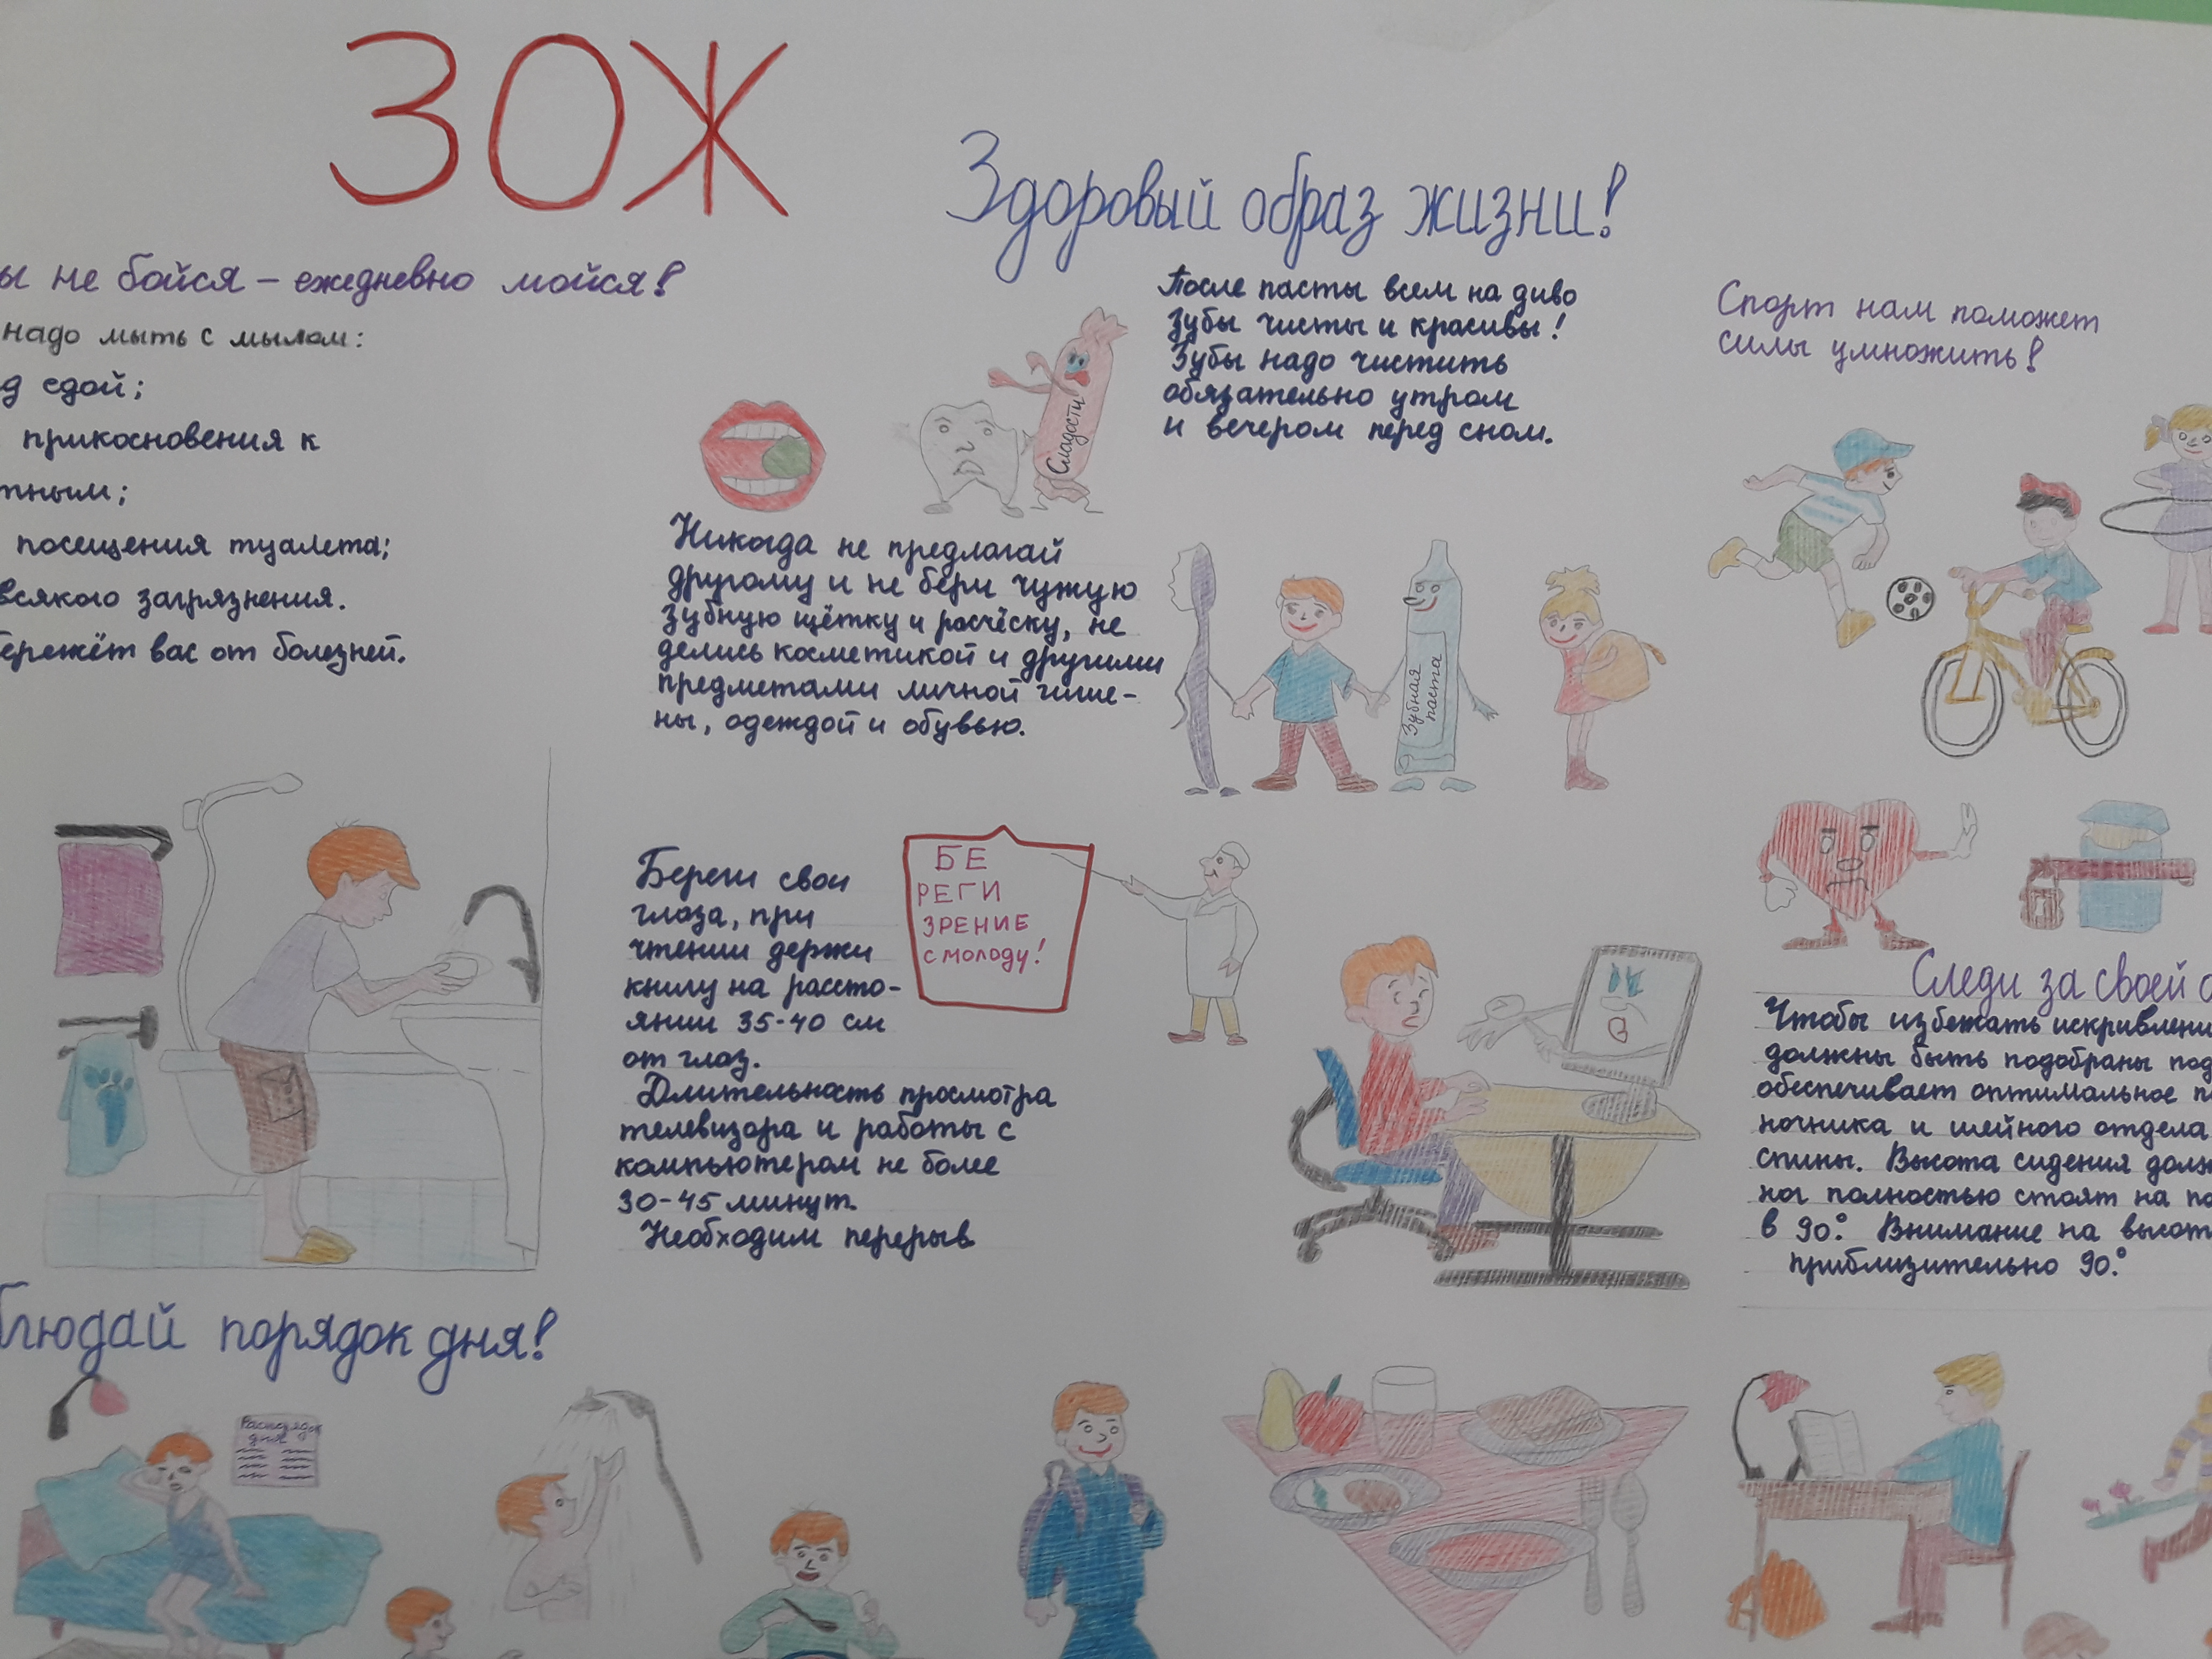 ЗОЖ
Здоровый образ жизни!
ы не бойся – ежедневно мойся!
надо мыть с мылом:
д едой;
прикосновения к
тным;
посещения туалета;
всякого загрязнения.
бережёт вас от болезней.
Сладости
После пасты всем на диво
зубы чисты и красивы!
Зубы надо чистить
обязательно утром
и вечером перед сном.
Никогда не предлагай
другому и не бери чужую
зубную щётку и расчёску, не
делись косметикой и другими
предметами личной гигие-
ны, одеждой и обувью.
Зубная
паста
Спорт нам поможет
силы умножить!
Береги свои
глаза, при
чтении держи
книгу на рассто-
янии 35-40 см
от глаз.
Длительность просмотра
телевизора и работы с
компьютером не более
30-45 минут.
Необходим перерыв
БЕ
РЕГИ
ЗРЕНИЕ
СМОЛОДУ!
Следи за своей о
Чтобы избежать искривлени
должны быть подобраны под
обеспечивает оптимальное п
ночника и шейного отдела
спины. Высота сидения долж
ног полностью стоят на по
в 90°. Внимание на высот
приблизительно 90°.
блюдай порядок дня!
Распорядок
дня